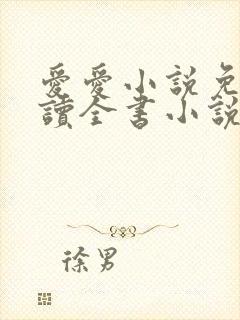 愛愛小說免
讀全書小說
徐男